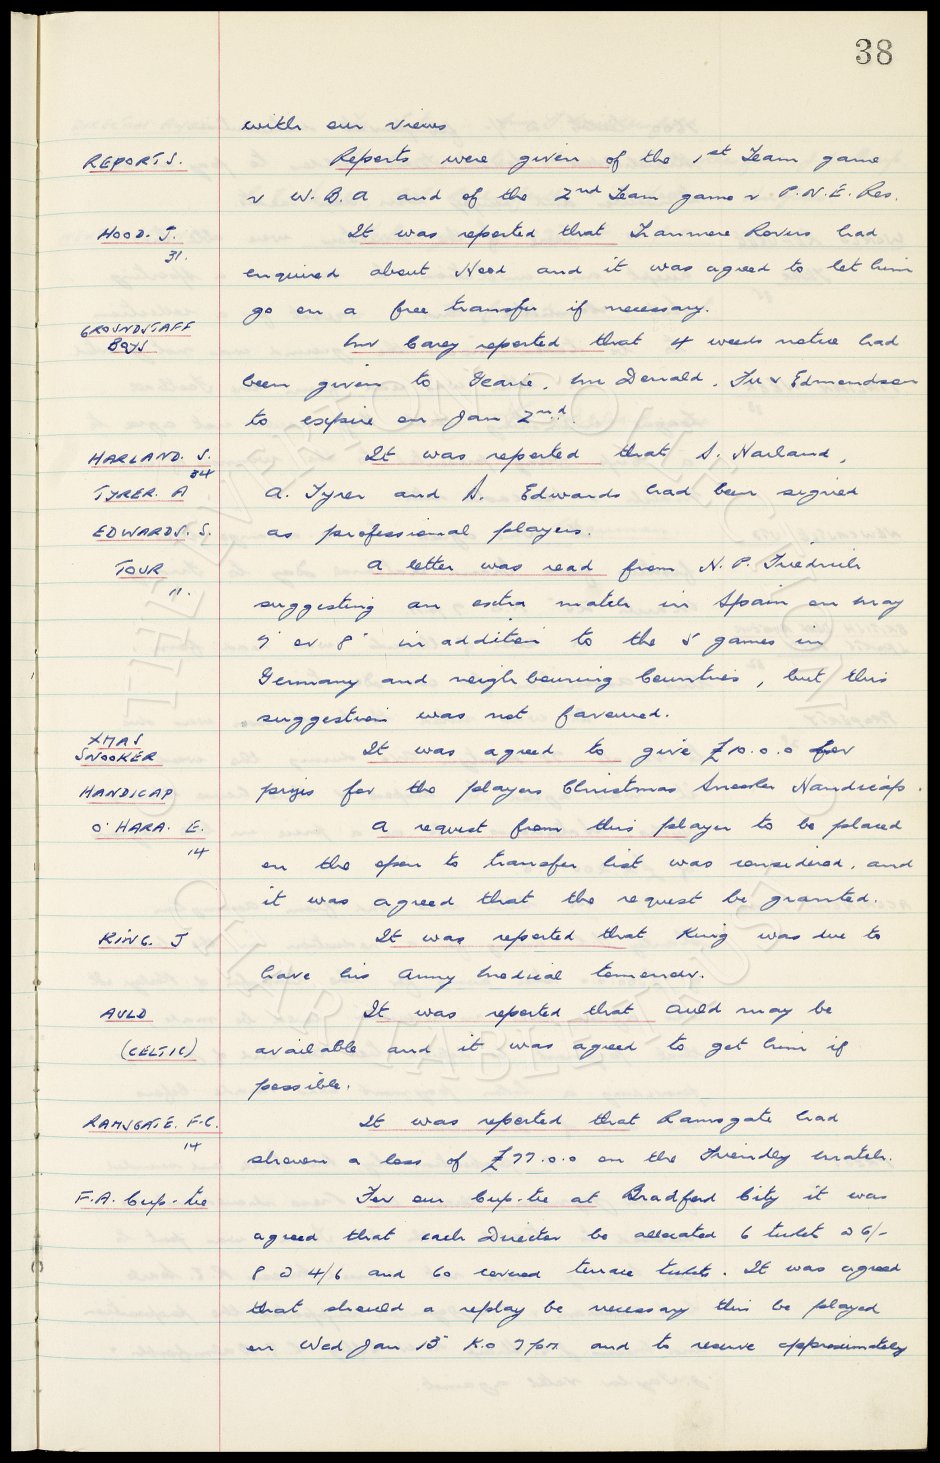 38
with our views
REPORTS. Reports were given of the 1st Team game
v W.B.A and of the 2nd Team game v P.N.E. Res.
HOOD. J. It was reported that Tranmere Rovers had
31.
enquired about Hood and it was agreed to let him
go on a free transfer if necessary.
GROUNDSTAFF
BOYS Mr Carey reported that 4 weeks notice had
been given to Gearie, Mc Donald, Edmondson
to expire on Jan 2nd.
HARLAND. S. It was reported that S. Harland,
34
TYRER. A A. Tyrer and S. Edwards had been signed
EDWARDS. S. as professional players.
TOUR A letter was read from N. P. Friedrich
11.
suggesting an extra match in Spain on May
7 or 8 in addition to the 5 games in
Germany and neighbouring Countries, but this
suggestion was not favoured.
XMAS
SNOOKER It was agreed to give £10.0.0 for
HANDICAP prizes for the players Christmas Snooker Handicap.
O'HARA. E. A request from this player to be placed
14
on the open to transfer list was considered, and
it was agreed that the request be granted.
KING. J It was reported that King was due to
have his Army Medical tomorrow.
AULD It was reported that Auld may be
(CELTIC) available and it was agreed to get him if
possible.
RAMSGATE. F.C. It was reported that Ramsgate had
14
shown a loss of £77.0.0 on the Friendly match.
F.A. Cup-tie For our Cup-tie at Bradford City it was
agreed that each Director be allocated 6 tickets @ 6/-
8 @ 4/6 and 60 covered terrace tickets. It was agreed
that should a replay be necessary this be played
on Wed Jan 13 K.o 7pm and to reserve approximately
THE EVERTON COLLECTION
CHARITABLE TRUST